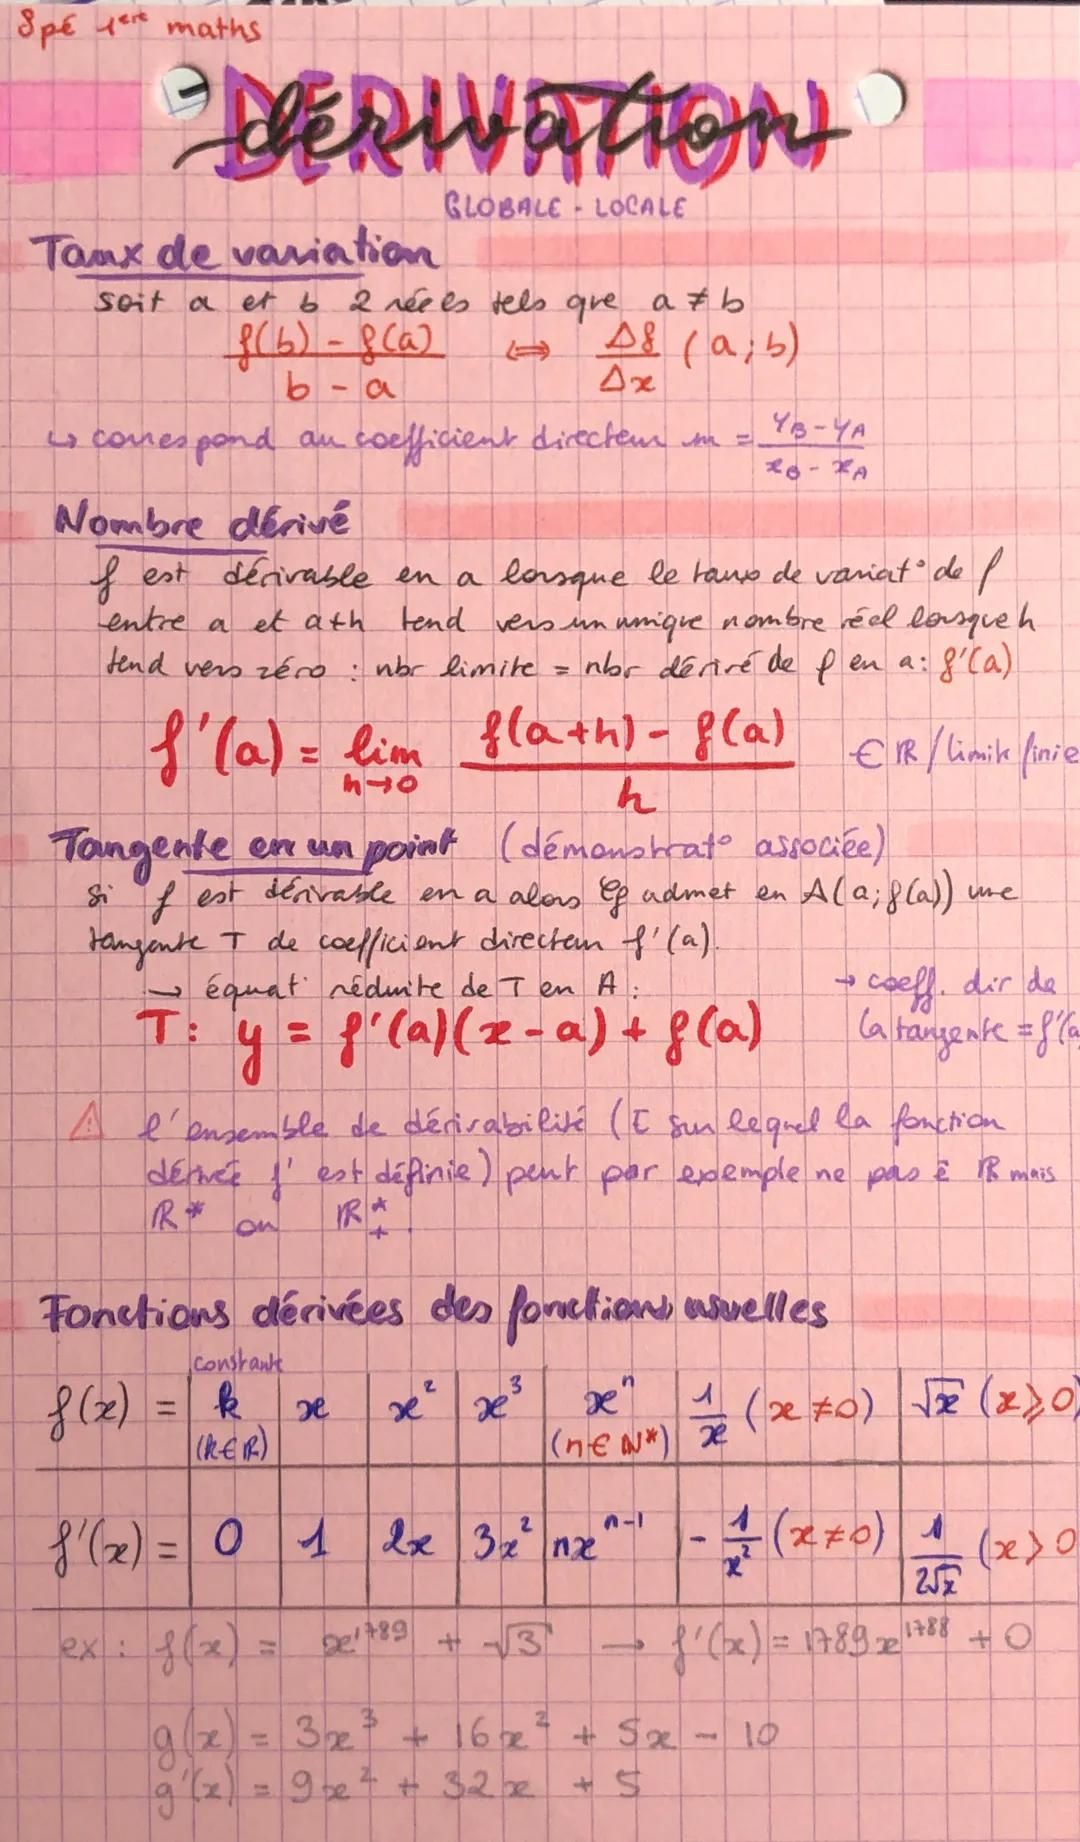 Spé 1ère maths
DERIVATION
dérivation
GLOBALE - LOCALE
Taux de variation
soit a et b 2 réels tels que a ≠ b
f(b) - f(a) / b - a ⇔ Δf / Δx (a;b)
↳ correspond au coefficient directeur m = yB - yA / xB - xA
Nombre dérivé
f est dérivable en a lorsque le taux de variat° de f
entre a et a+h tend vers un unique nombre réel lorsque h
tend vers zéro : nbr limite = nbr dérivé de f en a : f'(a)
f'(a) = lim h→0 f(a+h) - f(a) / h ∈ ℝ / limite finie
Tangente en un point (démonstrat° associée)
Si f est dérivable en a alors Cf admet en A(a;f(a)) une
tangente T de coefficient directeur f'(a).
→ équat° réduite de T en A :
→ coeff. dir de
T: y = f'(a)(x-a) + f(a)
la tangente = f'(a
⚠ l'ensemble de dérivabilité (I sur lequel la fonction
dérivée f' est définie) peut par exemple ne pas ê ℝ mais
ℝ* ou ℝ*+.
Fonctions dérivées des fonctions usuelles
constante
f(x) = k (k∈ℝ) | x | x² | x³ | xⁿ (n∈ℕ*) | 1/x (x≠0) | √x (x⩾0)
f'(x) = 0 | 1 | 2x | 3x² | nxⁿ⁻¹ | - 1/x² (x≠0) | 1/2√x (x>0
ex : f(x) = x¹⁷⁸⁹ + √3 → f'(x) = 1789x¹⁷⁸⁸ + 0
g(x) = 3x³ + 16x² + 5x - 10
g'(x) = 9x² + 32x + 5